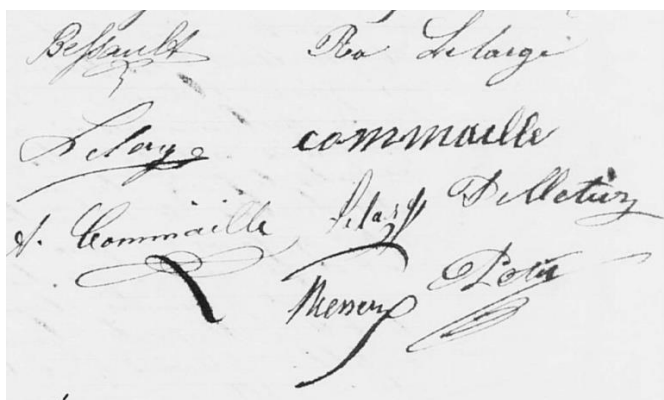 Bessault Ra Lelarge
Lelarge commaille
A. Commaille Lelarge Pelletier
Petit